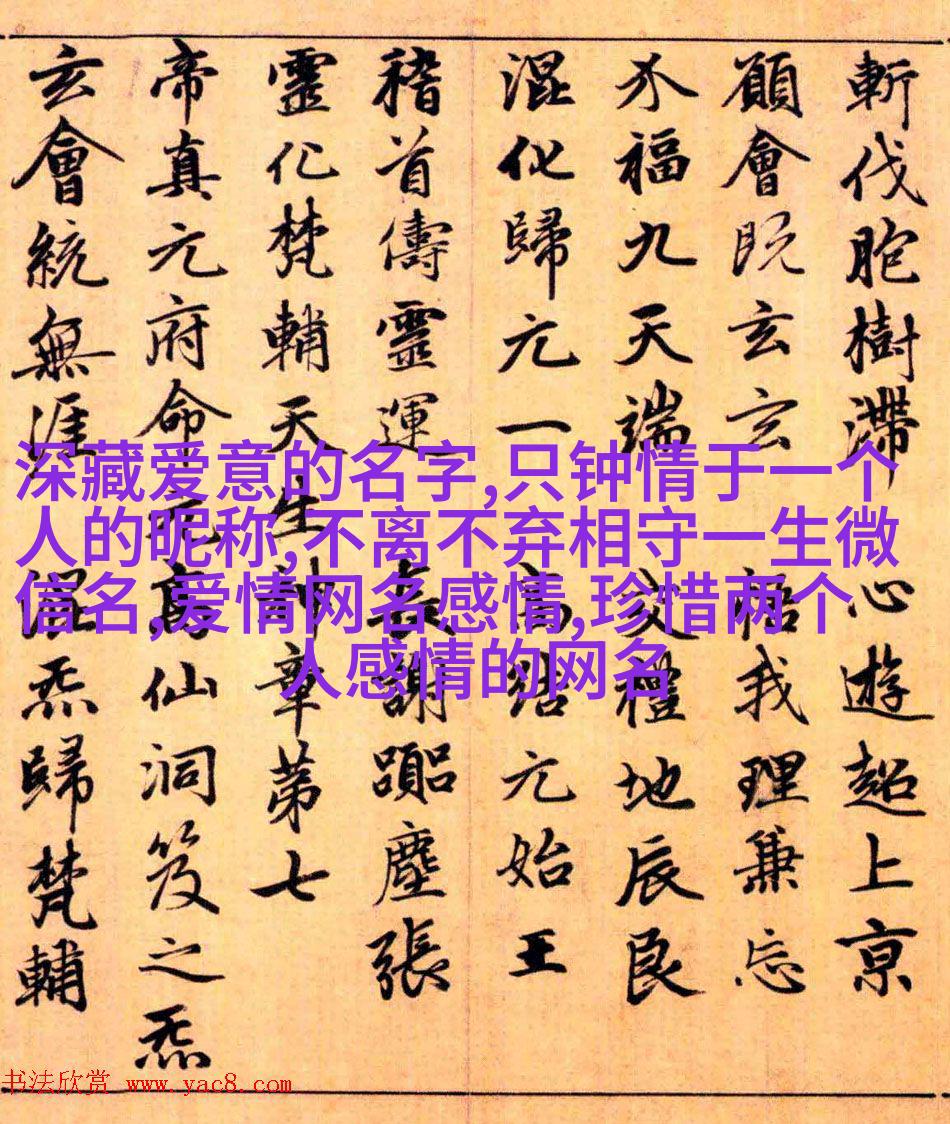 斬伐胞樹滯心遊超上京
願會既玄玄悟我理兼忘
介福九天端交禮地辰良
混化歸元一高結元始王
稽首儔靈運長謝躡塵張
靈化梵輔天生神章第七
帝真元府命元高仙洞笈之炁
玄會統無涯混炁歸梵輔
深藏爱意的名字,只钟情于一个
人的昵称,不离不弃相守一生微
信名,爱情网名感情,珍惜两个
人感情的网名
书法欣赏 www.yac8.com